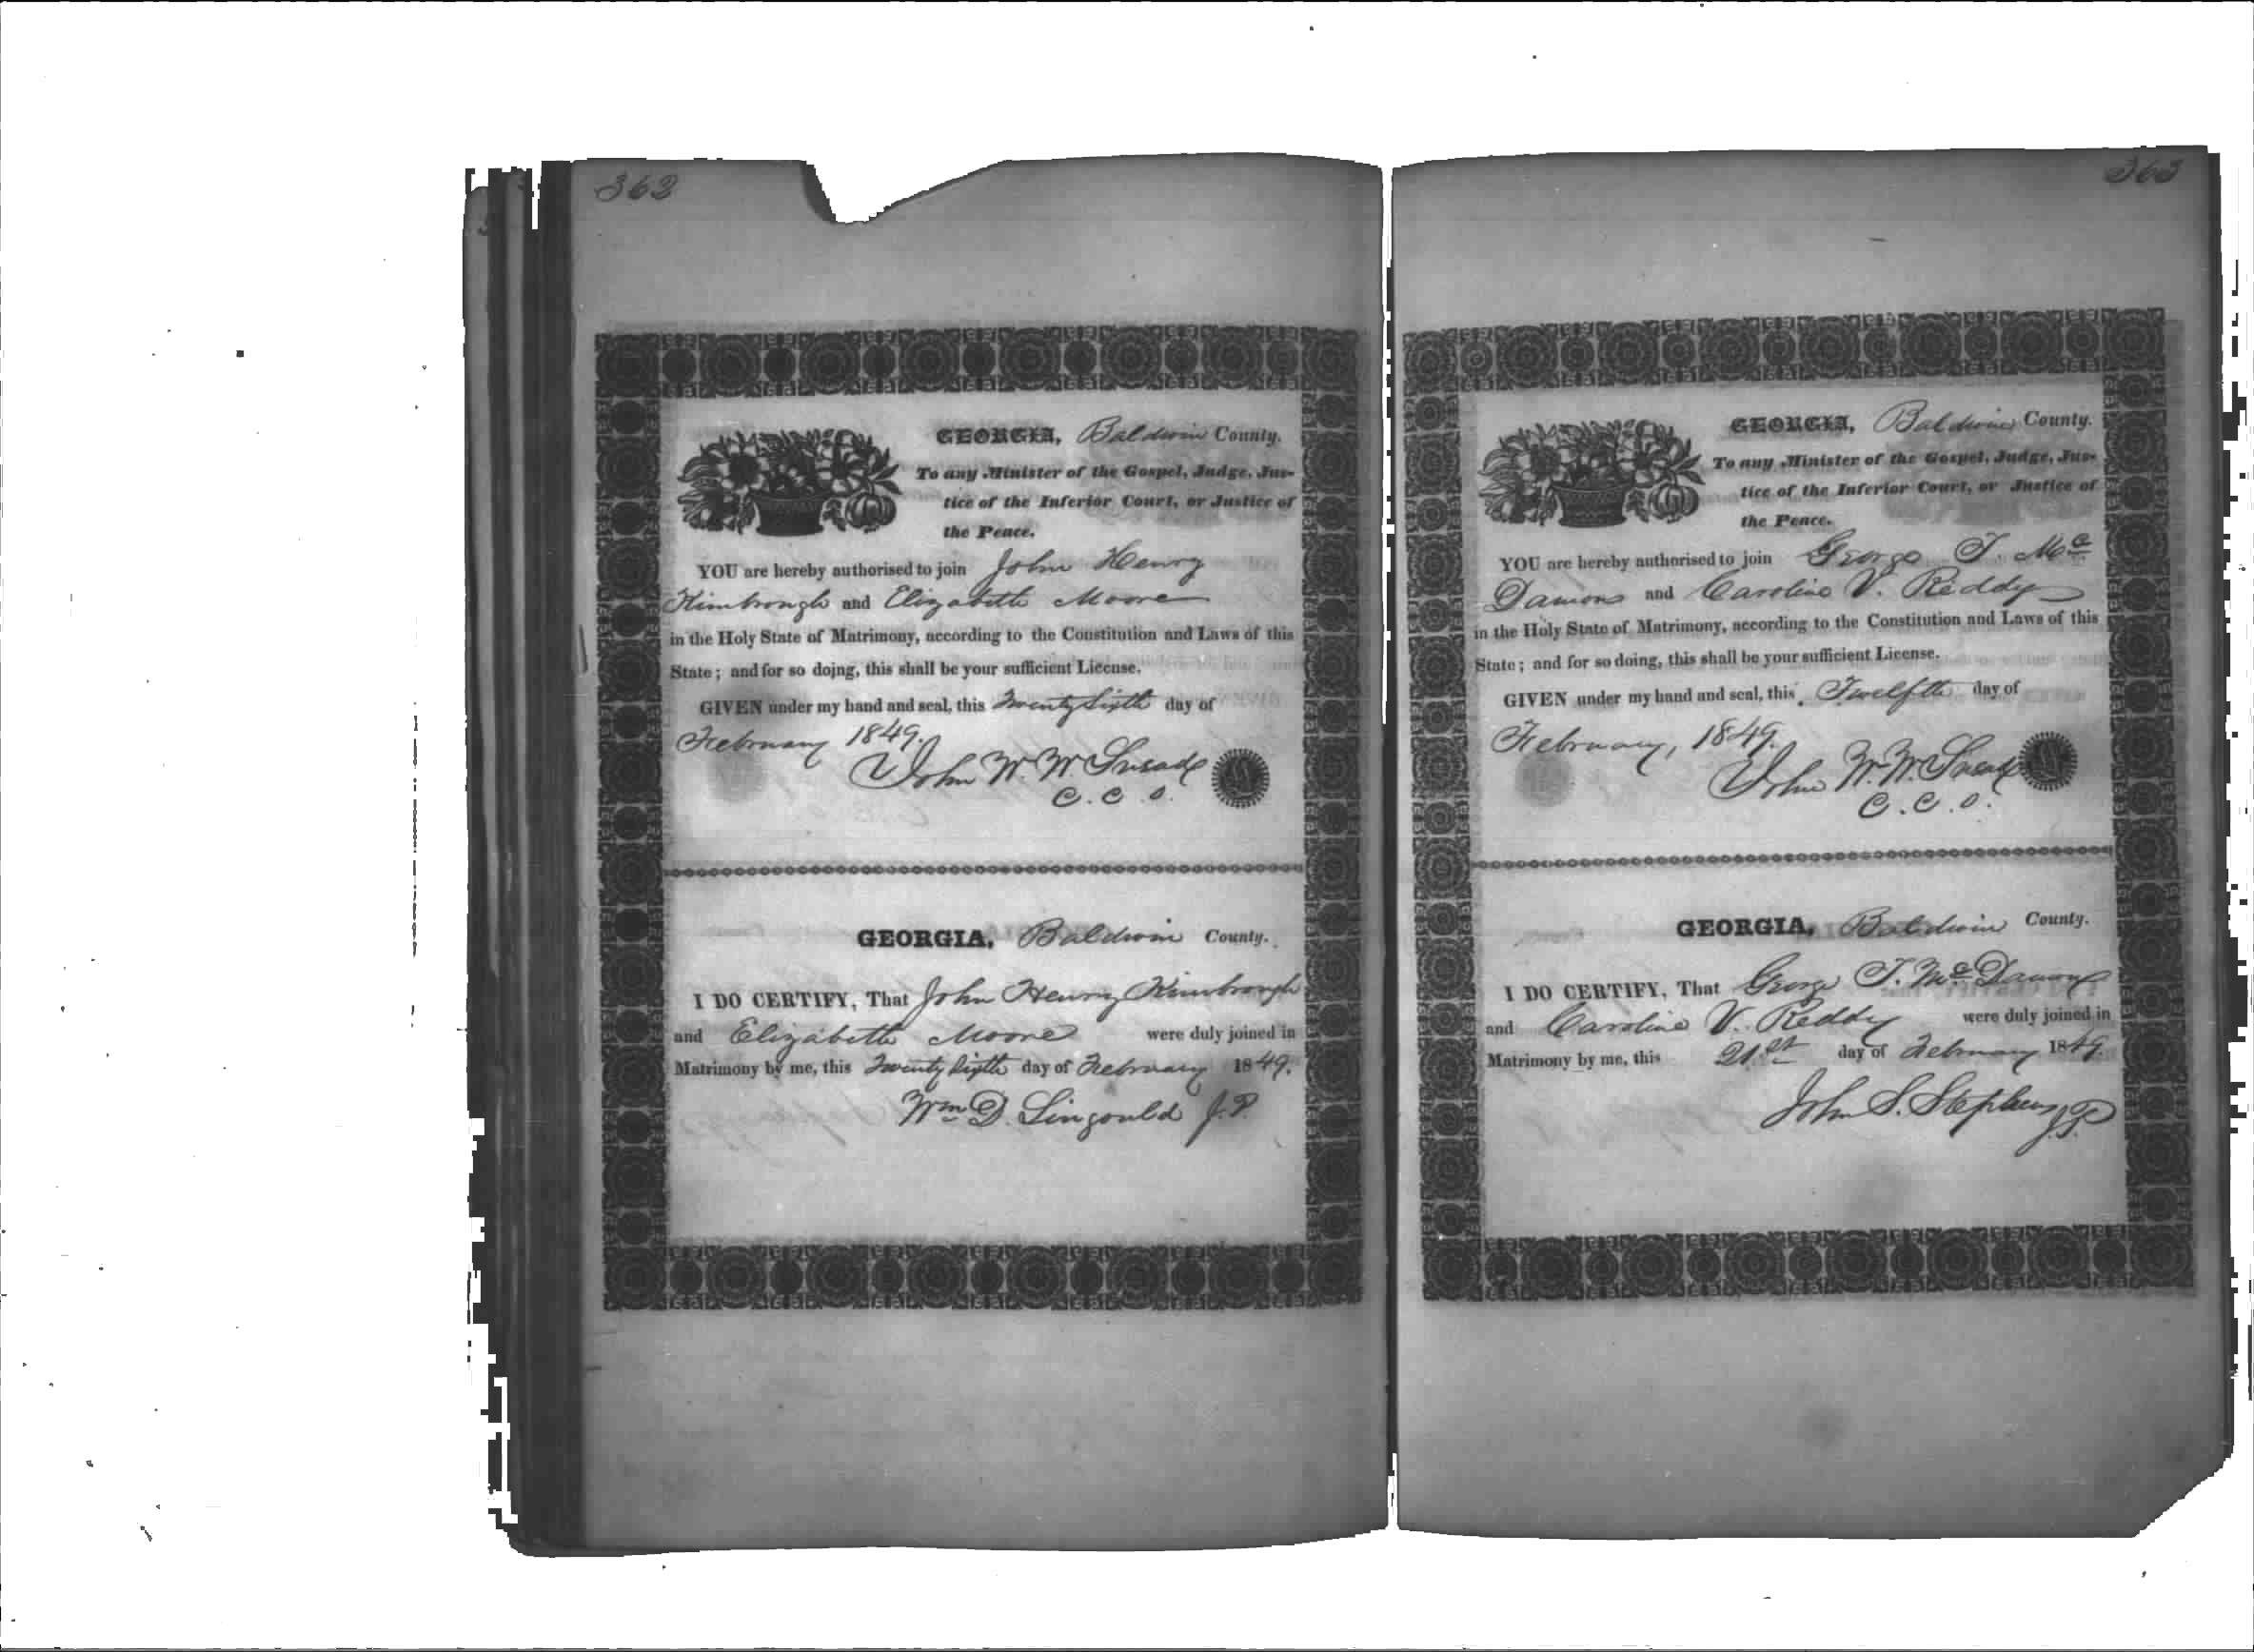 362
GEORGIA, Baldwin County.
To any Minister of the Gospel, Judge, Jus-
tice of the Inferior Court, or Justice of
the Peace.
YOU are hereby authorised to join John Henry
Kimbrough and Elizabeth Moore
in the Holy State of Matrimony, according to the Constitution and Laws of this
State; and for so doing, this shall be your sufficient License.
GIVEN under my hand and seal, this Twenty Sixth day of
February 1849.
John W. W. Snead
C. C. O.
GEORGIA, Baldwin County.
I DO CERTIFY, That John Henry Kimbrough
and Elizabeth Moore were duly joined in
Matrimony by me, this Twenty Sixth day of February 1849.
Wm D. Lingould J. P.
363
GEORGIA, Baldwin County.
To any Minister of the Gospel, Judge, Jus-
tice of the Inferior Court, or Justice of
the Peace.
YOU are hereby authorised to join George T. Mc
Damons and Caroline V. Reddy
in the Holy State of Matrimony, according to the Constitution and Laws of this
State; and for so doing, this shall be your sufficient License.
GIVEN under my hand and seal, this Twelfth day of
February, 1849.
John W. W. Snead
C. C. O.
GEORGIA, Baldwin County.
I DO CERTIFY, That George T. Mc
and Caroline V. Reddy were duly joined in
Matrimony by me, this 21st day of February 1849.
John S. Stephens J. P.